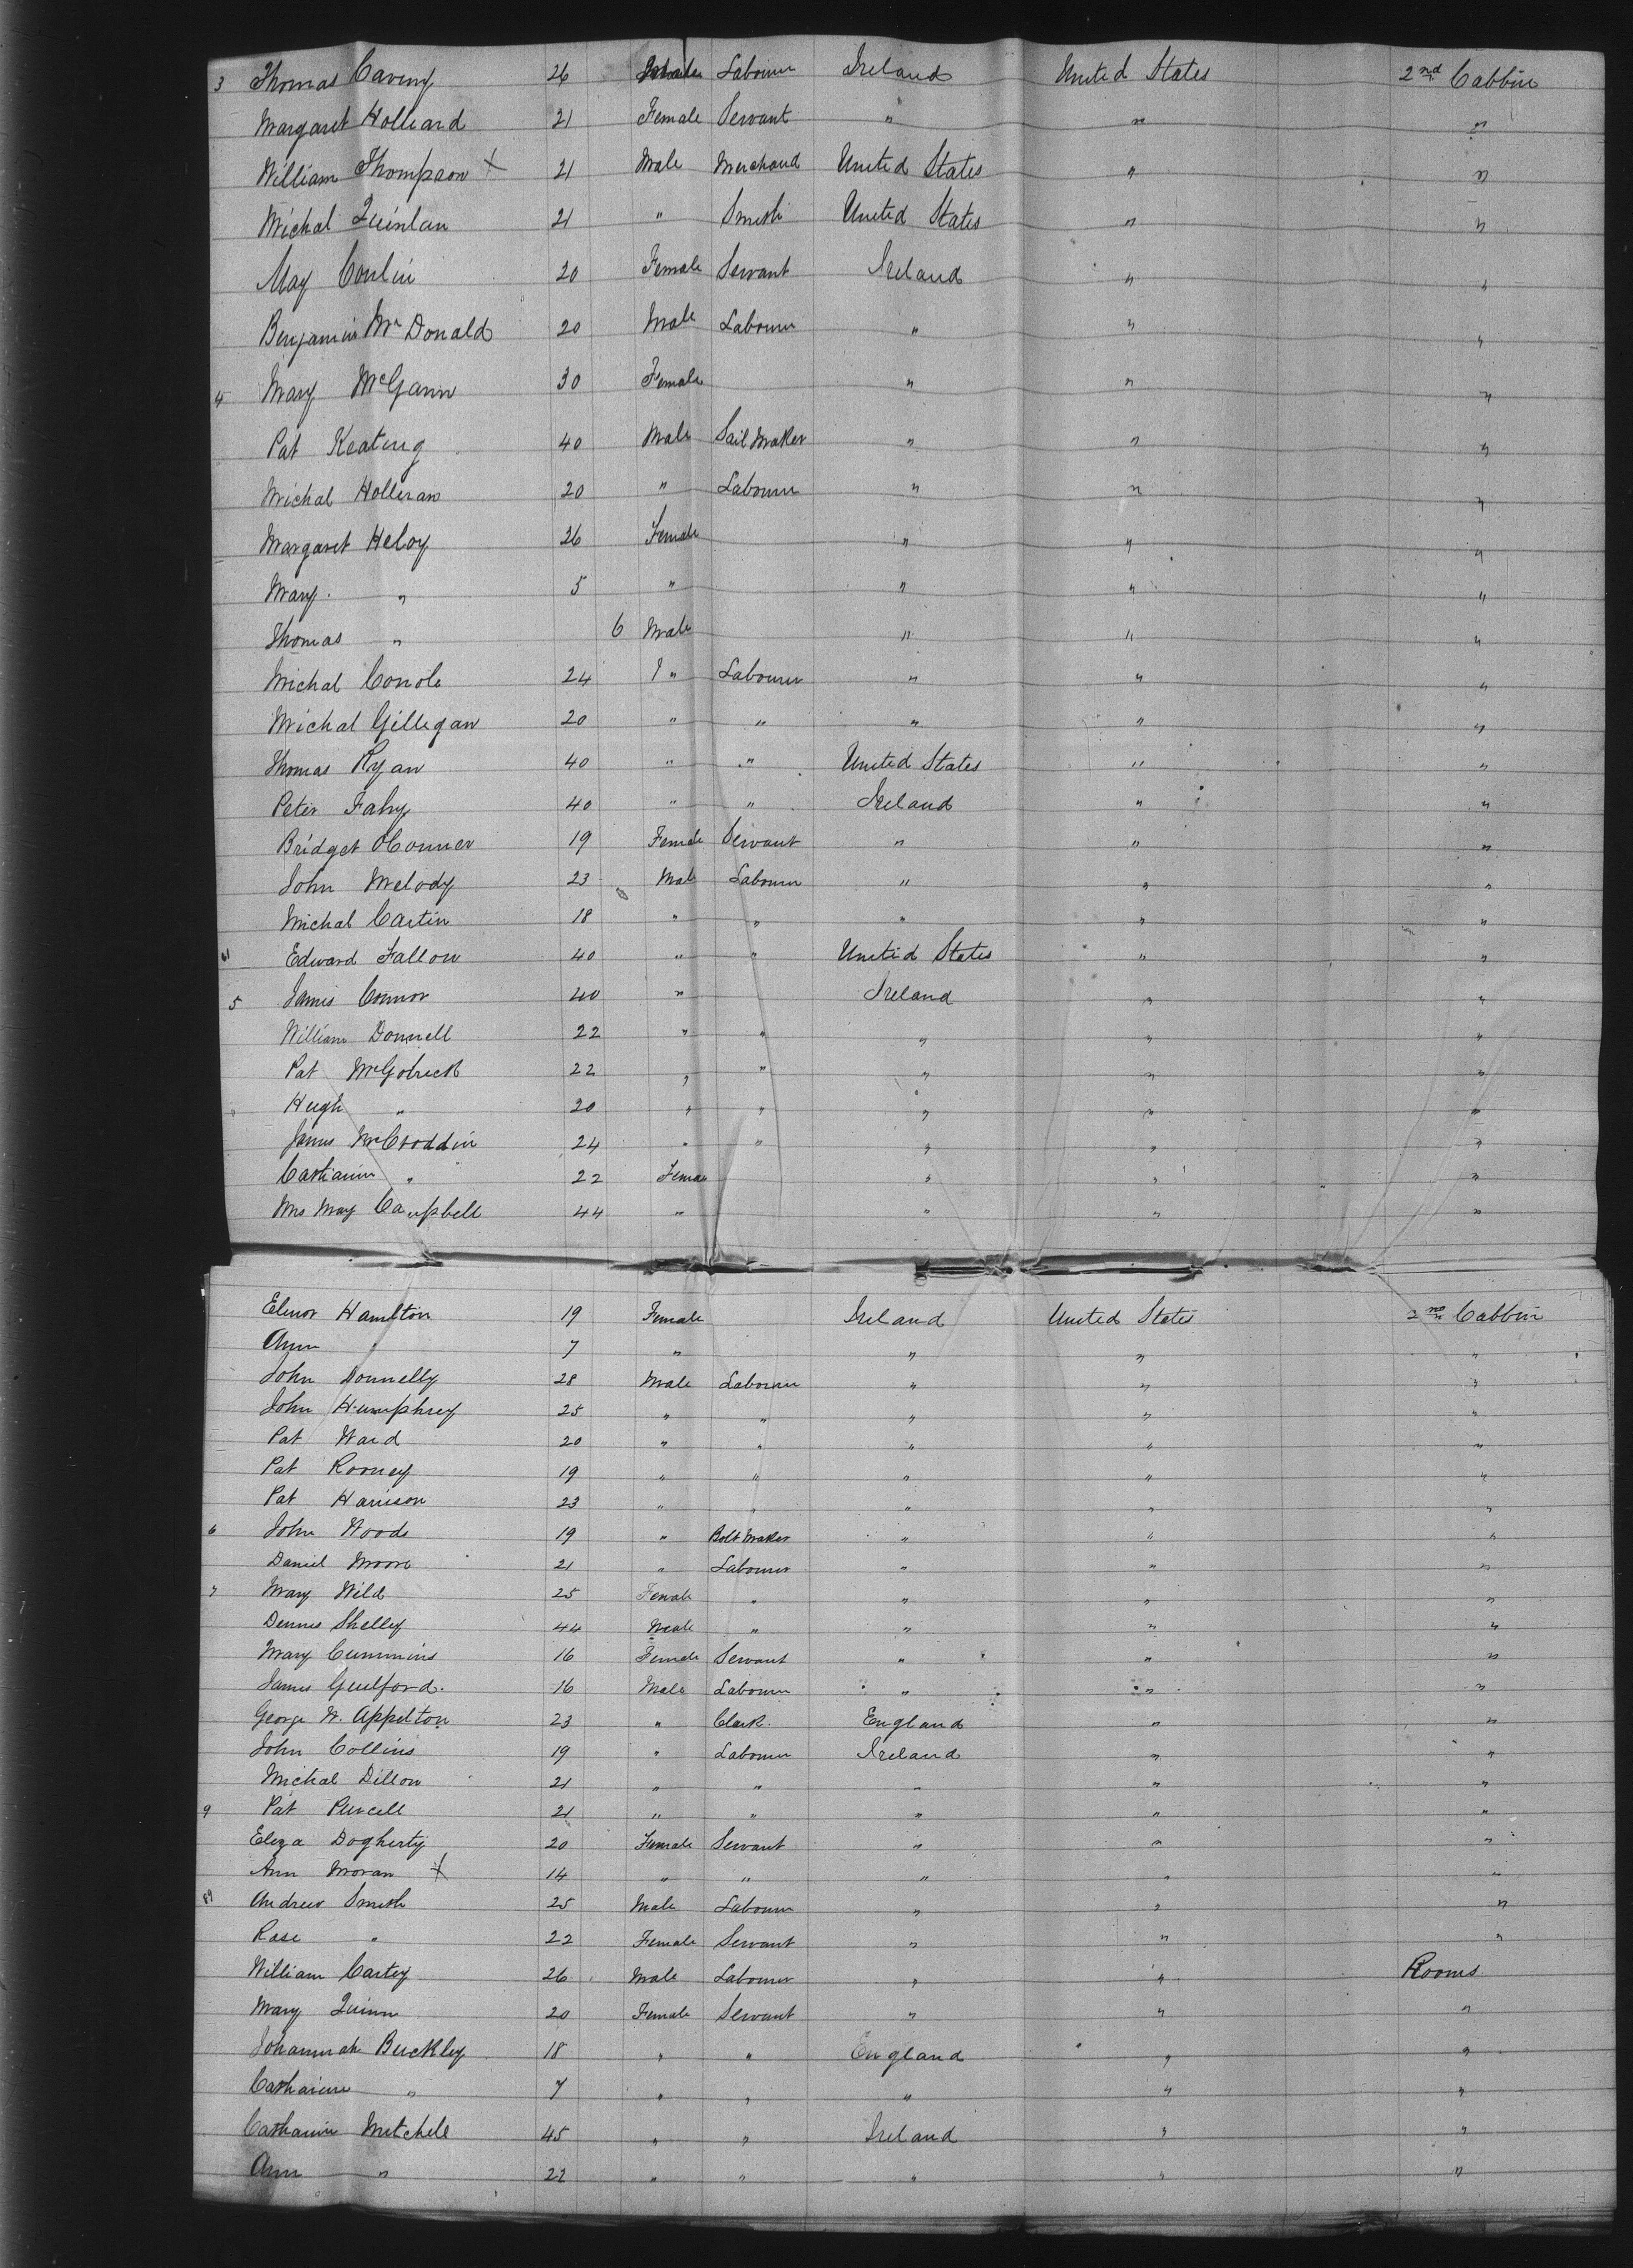 3 Thomas Caveny 26 Male Labourer Ireland United States 2nd Cabbin
Margaret Holleard 21 Female Servant " " "
William Thompson X 21 Male Merchand United States " "
Michal Quinlan 21 " Smith United States " "
May Conlin 20 Female Servant Ireland " "
Benjamin Mc Donald 20 Male Labourer " " "
4 Mary McGann 30 Female " " "
Pat Keating 40 Male Sail Maker " " "
Michal Holleran 20 " Labourer " " "
Margaret Heloy 26 Female " " "
Mary " 5 " " " "
Thomas " 6 Male " " "
Michal Conole 24 " Labourer " " "
Michal Gillegan 20 " " " " "
Thomas Ryan 40 " " United States " "
Peter Fahy 40 " " Ireland " "
Bridget OConner 19 Female Servant " " "
John Melody 23 Male Labourer " " "
Michal Cartin 18 " " " " "
Edward Fallon 40 " " United States " "
5 James Connor 40 " Ireland " "
William Donnell 22 " " " " "
Pat 22 " " " " "
Hugh " 20 " " " " "
James McCroddin 24 " " " " "
Catharine " 22 Female " " "
Mrs May Campbell 44 " " " "
Elenor Hamilton 19 Female Ireland United States 2nd Cabbin
Ann " 7 " " " "
John Donnelly 28 Male Labourer " " "
John Humphrey 25 " " " " "
Pat Ward 20 " " " " "
Pat Rooney 19 " " " " "
Pat Harrison 23 " " " " "
6 John Woods 19 " Bolt Maker " " "
Daniel Moore 21 " Labourer " " "
7 Mary Wild 25 Female " " " "
Dennis Shelley 44 Male " " " "
Mary Cummins 16 Female Servant " " "
James Guilford 16 Male Labourer " " "
George W. Appelton 23 " Clark England " "
John Collins 19 " Labourer Ireland " "
Michal Dillon 21 " " " " "
9 Pat Purcell 21 " " " " "
Eliza Dogherty 20 Female Servant " " "
Ann Moran X 14 " " " " "
Andrew Smith 25 Male Labourer " " "
Rose " 22 Female Servant " " "
William Cartey 26 Male Labourer " " Rooms
Mary Quinn 20 Female Servant " " "
Johannah Buckley 18 " " England " "
Catharine " 7 " " " " "
Catharine Mitchell 45 " " Ireland " "
Ann " 22 " " " " "